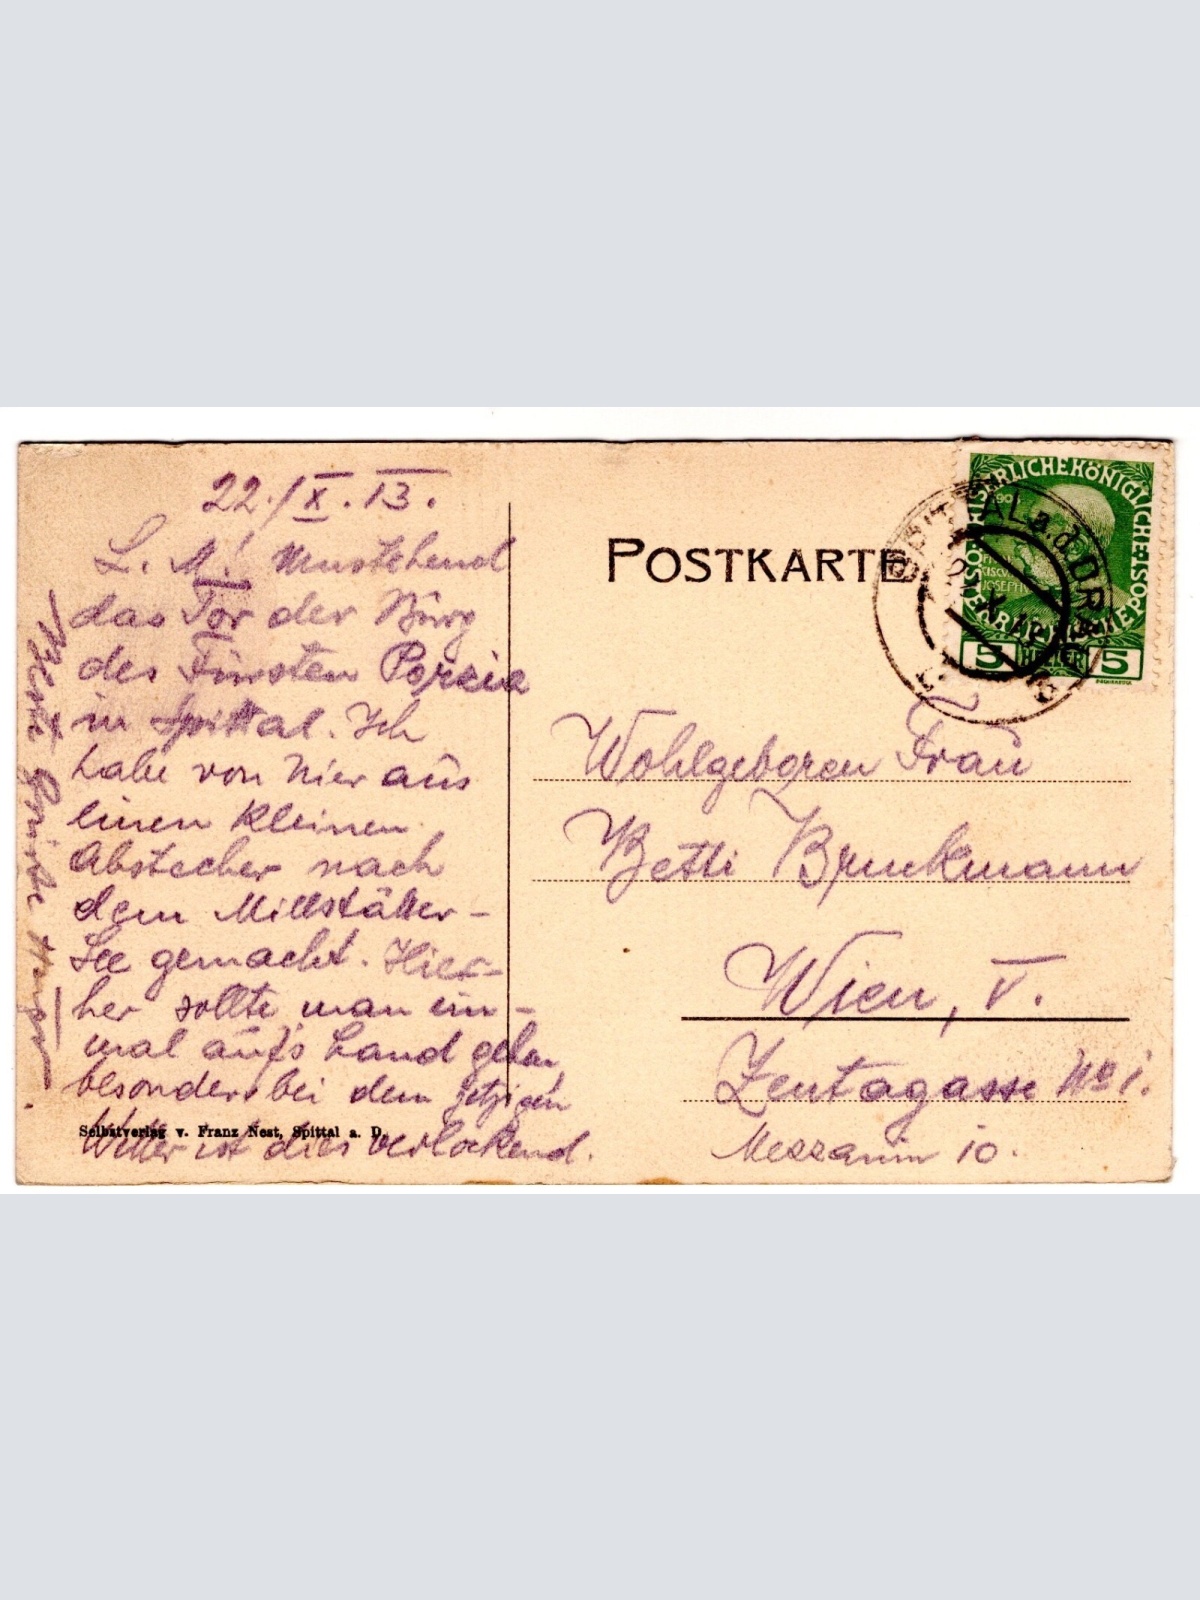 22./X.13.
L. M.! Umstehend
das Tor der Burg
des Fürsten Porzia
in Spittal. Ich
habe von hier aus
einen kleinen
Abstecher nach
dem Millstätter-
See gemacht. Hier-
her sollte man ein-
mal auf's Land gehen,
besonders bei dem jetzigen
Wetter ist dies verlockend.
Beste Grüsse
Selbstverlag v. Franz Nest, Spittal a. D.
POSTKARTE
SPITTAL a.d. DRAU
KAISERLICHE KÖNIGLICHE ÖSTERR. POST
JOSEPH
5 HELLER 5
Wohlgeboren Frau
Betti Bruckmann
Wien, V.
Zentagasse No 1.
Mezzanin 10.